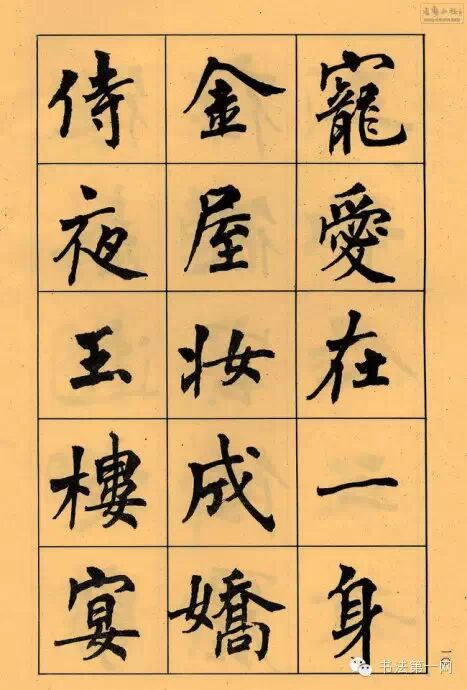 寵愛在一身
金屋妆成嬌
侍夜玉樓宴
一〇
书法第一网